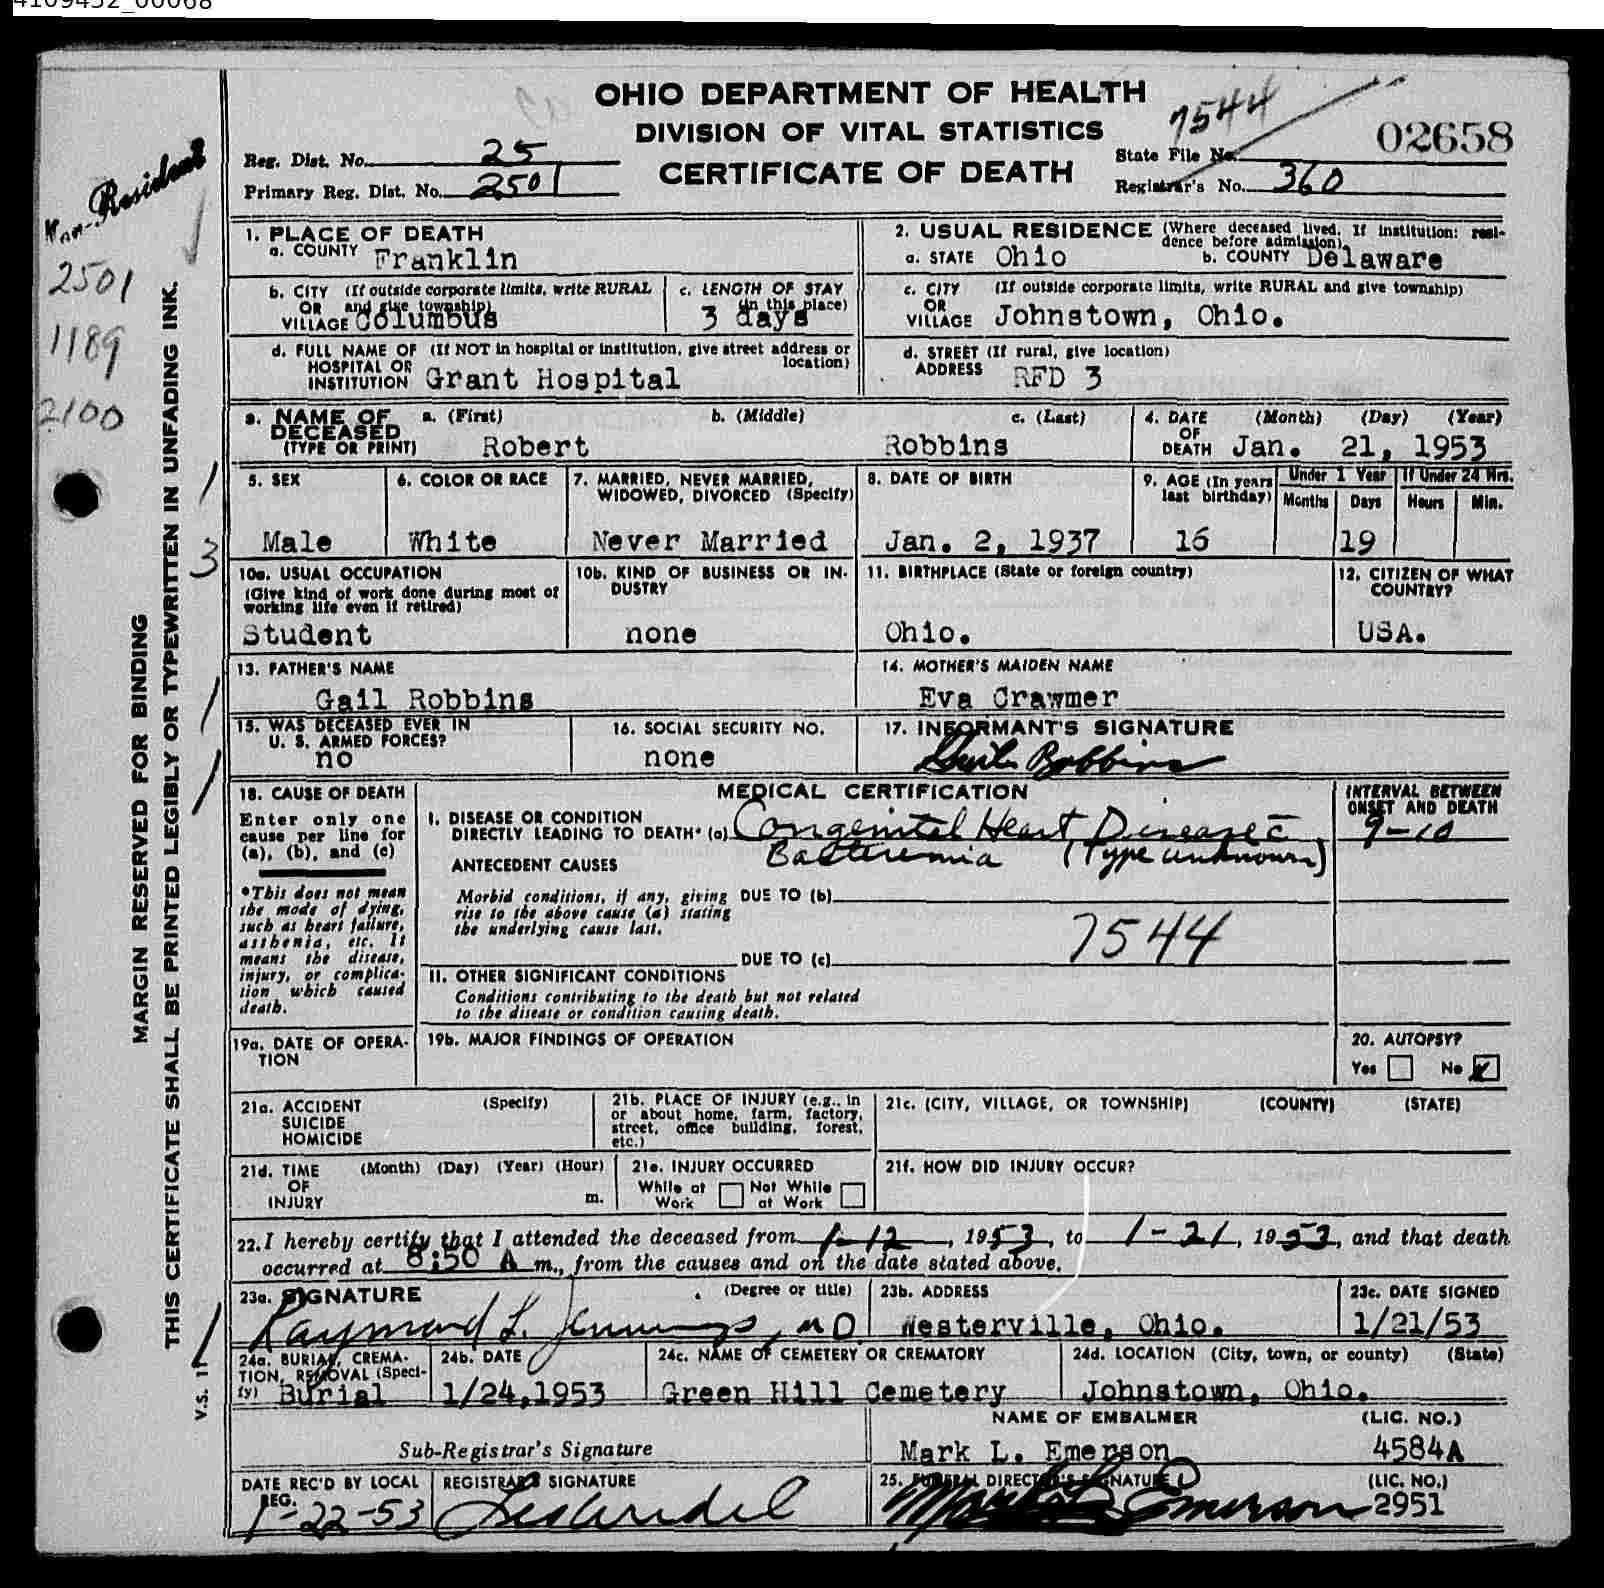 4109432_00068
OHIO DEPARTMENT OF HEALTH
DIVISION OF VITAL STATISTICS
CERTIFICATE OF DEATH
Reg. Dist. No. 25
Primary Reg. Dist. No. 2501
7544
State File No.
02658
Registrar's No. 360
Non-Resident
2501
1189
2100
MARGIN RESERVED FOR BINDING
THIS CERTIFICATE SHALL BE PRINTED LEGIBLY OR TYPEWRITTEN IN UNFADING INK.
3
V.S. 1
1. PLACE OF DEATH
a. COUNTY Franklin
b. CITY (If outside corporate limits, write RURAL
OR and give township)
VILLAGE Columbus
c. LENGTH OF STAY
(in this place)
3 days
d. FULL NAME OF (If NOT in hospital or institution, give street address or
HOSPITAL OR location)
INSTITUTION Grant Hospital
2. USUAL RESIDENCE (Where deceased lived. If institution: resi-
dence before admission).
a. STATE Ohio b. COUNTY Delaware
c. CITY (If outside corporate limits, write RURAL and give township)
OR
VILLAGE Johnstown, Ohio.
d. STREET (If rural, give location)
ADDRESS RFD 3
3. NAME OF a. (First) b. (Middle) c. (Last)
DECEASED
(TYPE OR PRINT) Robert Robbins
4. DATE (Month) (Day) (Year)
OF
DEATH Jan. 21, 1953
5. SEX
Male
6. COLOR OR RACE
White
7. MARRIED, NEVER MARRIED,
WIDOWED, DIVORCED (Specify)
Never Married
8. DATE OF BIRTH
Jan. 2, 1937
9. AGE (In years
last birthday)
16
Under 1 Year
Months Days
19
If Under 24 Hrs.
Hours Min.
10a. USUAL OCCUPATION
(Give kind of work done during most of
working life even if retired)
Student
10b. KIND OF BUSINESS OR IN-
DUSTRY
none
11. BIRTHPLACE (State or foreign country)
Ohio.
12. CITIZEN OF WHAT
COUNTRY?
USA.
13. FATHER'S NAME
Gail Robbins
14. MOTHER'S MAIDEN NAME
Eva Crawmer
15. WAS DECEASED EVER IN
U. S. ARMED FORCES?
no
16. SOCIAL SECURITY NO.
none
17. INFORMANT'S SIGNATURE
Robbins
18. CAUSE OF DEATH
Enter only one
cause per line for
(a), (b), and (c)
*This does not mean
the mode of dying,
such as heart failure,
asthenia, etc. It
means the disease,
injury, or complica-
tion which caused
death.
MEDICAL CERTIFICATION
I. DISEASE OR CONDITION
DIRECTLY LEADING TO DEATH* (a) Congenital Heart Disease c̄
Bacteremia (Type unknown)
ANTECEDENT CAUSES
Morbid conditions, if any, giving DUE TO (b)
rise to the above cause (a) stating
the underlying cause last.
7544
DUE TO (c)
II. OTHER SIGNIFICANT CONDITIONS
Conditions contributing to the death but not related
to the disease or condition causing death.
INTERVAL BETWEEN
ONSET AND DEATH
9-10
19a. DATE OF OPERA-
TION
19b. MAJOR FINDINGS OF OPERATION
20. AUTOPSY?
Yes No
21a. ACCIDENT (Specify)
SUICIDE
HOMICIDE
21b. PLACE OF INJURY (e.g., in
or about home, farm, factory,
street, office building, forest,
etc.)
21c. (CITY, VILLAGE, OR TOWNSHIP) (COUNTY) (STATE)
21d. TIME (Month) (Day) (Year) (Hour)
OF
INJURY m.
21e. INJURY OCCURRED
While at Not While
Work at Work
21f. HOW DID INJURY OCCUR?
22. I hereby certify that I attended the deceased from 1-12, 1953, to 1-21, 1953, and that death
occurred at 8:50 A m., from the causes and on the date stated above.
23a. SIGNATURE (Degree or title)
Raymond L. Jennings, MD
23b. ADDRESS
Westerville, Ohio.
23c. DATE SIGNED
1/21/53
24a. BURIAL, CREMA-
TION, REMOVAL (Speci-
fy) Burial
24b. DATE
1/24,1953
24c. NAME OF CEMETERY OR CREMATORY
Green Hill Cemetery
24d. LOCATION (City, town, or county) (State)
Johnstown, Ohio.
Sub-Registrar's Signature
NAME OF EMBALMER (LIC. NO.)
Mark L. Emerson 4584A
DATE REC'D BY LOCAL
REG.
1-22-53
REGISTRAR'S SIGNATURE
25. FUNERAL DIRECTOR'S SIGNATURE (LIC. NO.)
Emerson 2951